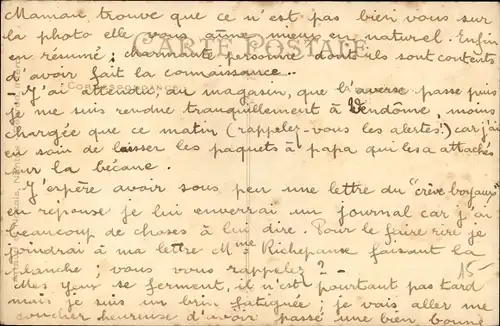 Maman, trouve que ce n'est pas bien vous sur
la photo elle vous aime mieux en naturel. Enfin
CARTE POSTALE
en résumé; charmante personne dont ils sont contents
d'avoir fait la connaissance..
CORRESPONDANCE
- J'ai attendu, au magasin, que l'averse passe puis
je me suis rendue tranquillement à Vendôme, moins
chargée que ce matin (rappelez-vous les alertes!) car j'ai
eu soin de laisser les paquets à papa qui les a attachés
sur la bécane.
J'espère avoir sous peu une lettre du "crève boyaux"
en réponse je lui enverrai un journal car j'ai
beaucoup de choses à lui dire. Pour le faire rire je
joindrai à ma lettre Mme Richepanse faisant la
planche; vous vous rappelez? -
15-
Mes yeux se ferment, il n'est pourtant pas tard
mais je suis un brin fatiguée; je vais aller me
coucher heureuse d'avoir passé une bien bonne